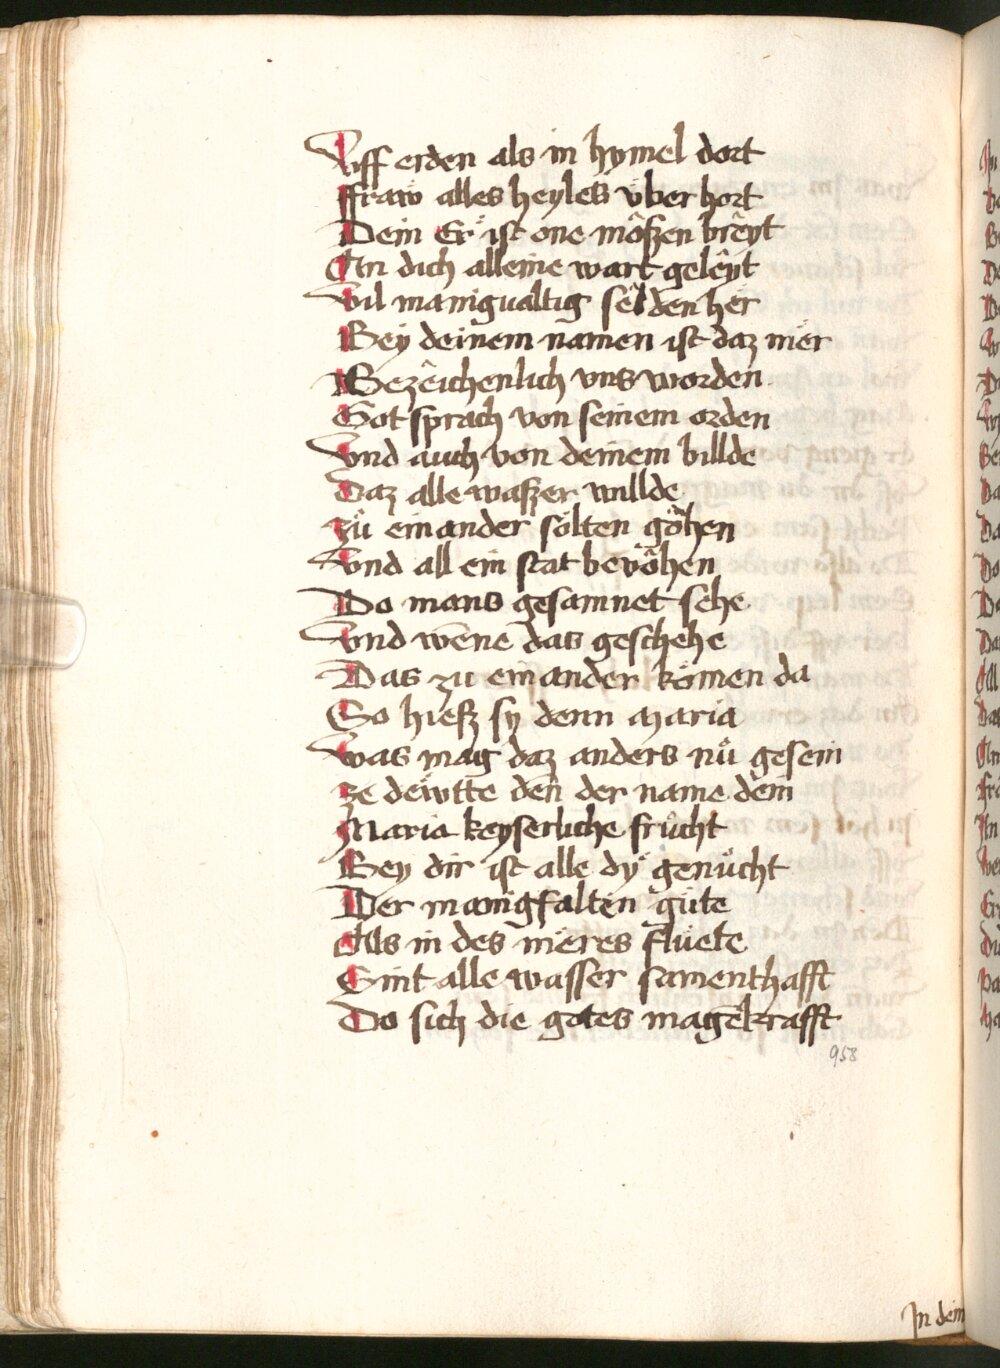 Vff erden als in hymel dort
ffraw alles heyles v̈ber hort
Dein Er ist one môſzen brêyt
An dich alleine wart gelêyt
Vil manigualtig sêlden her
Bey deinem namen ist daz mer
Bezêichenlich vns worden
Got sprach von seinem orden
Vnd auch von deinem billde
Daz alle waſzer willde
zů einander sölten gôhen
Vnd all ein stat bevôhen
Do mans gesamnet sehe
Vnd wene das geschehe
Das zu einander kömen da
So hieſz sy denn maria
Was mag daz anders nů gesein
ze dewtte den der name dein
Maria keyserliche frůcht
Bey dir ist alle dy genůcht
Der manigfalten gute
Als in des meres fluete
Sint alle wasser samenthafft
Do sich die gotes magekrafft
958
In dein